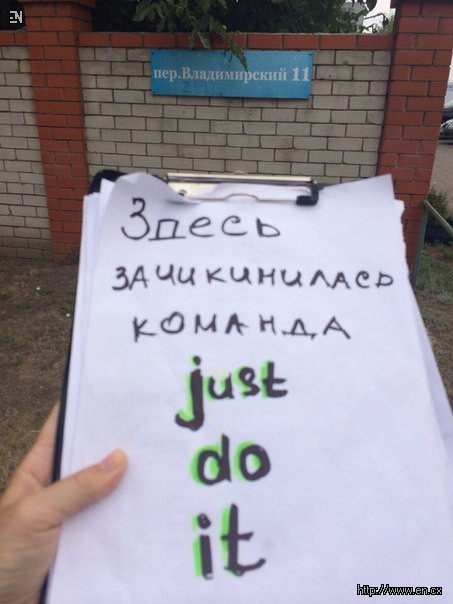 EN
пер.Владимирский 11
Здесь
ЗАЧИКИНИЛАСЬ
КОМАНДА
just
do
it
http://www.en.cx